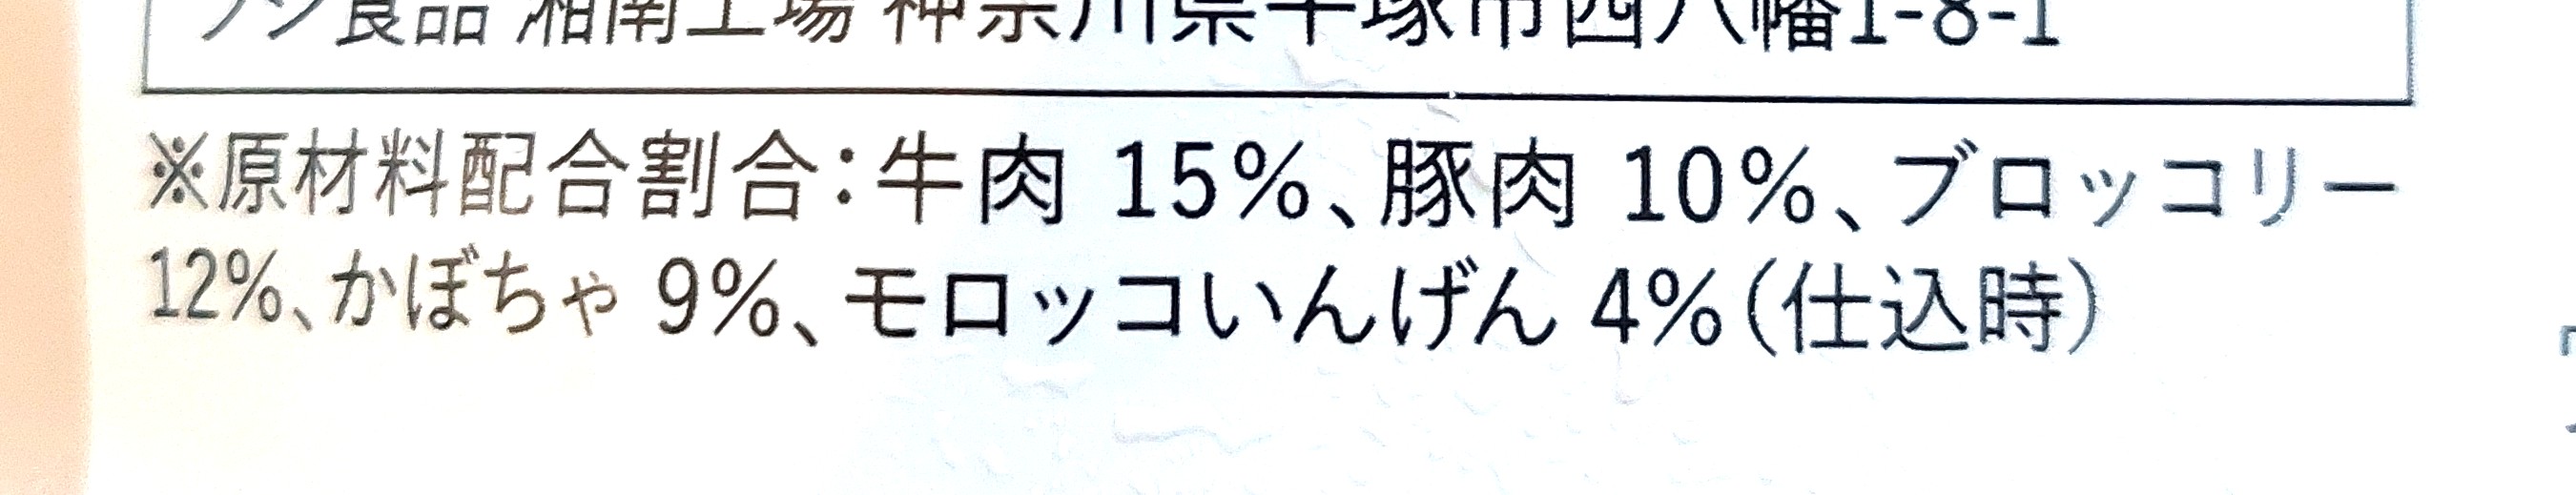 食品 湘南工場 神奈川県平塚市西八幡1-8-1
※原材料配合割合：牛肉 15%、豚肉 10%、ブロッコリー
12%、かぼちゃ 9%、モロッコいんげん 4%（仕込時）